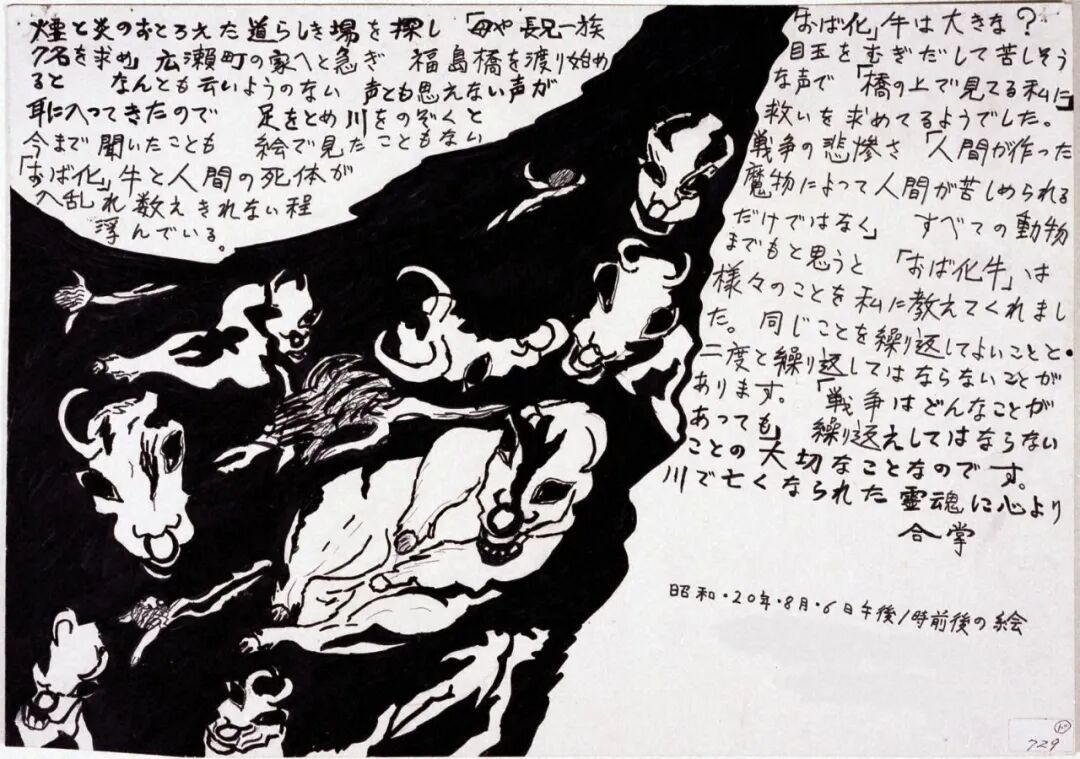 煙と炎のおとろえた道らしき場を探し「母や長兄一族
7名を求め」広瀬町の家へと急ぎ 福島橋を渡り始め
ると なんとも云いようのない 声とも思えない声が
耳に入ってきたので 足をとめ川をのぞくと
今まで聞いたことも 絵で見たこともない
「おば化」牛と人間の死体が
入乱れ数えきれない程
浮んでいる。
「おば化」牛は大きな?
目玉をむぎだして苦しそう
な声で「橋の上で見てる私に」
救いを求めてるようでした。
戦争の悲惨さ「人間が作った
魔物によって人間が苦しめられる
だけではなく」 すべての動物
までもと思うと 「おば化牛」いは
様々のことを私に教えてくれまし
た。同じことを繰り返してよいことと・
二度と繰り返してはならないことが
あります。「戦争はどんなことが
あっても」繰り返えしてはならない
ことの大切なことなのです。
川で亡くなられた霊魂に心より
合掌
昭和・20年・8月・6日午後1時前後の絵
729